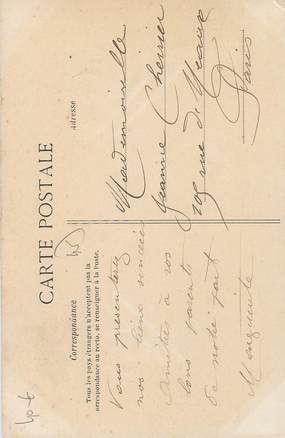 CARTE POSTALE
Correspondance
Tous les pays étrangers n'acceptent pas la
correspondance au recto, se renseigner à la Poste.
Adresse
Vous présenterez
nos bien sincères
amitiés à vos
bons parents
de notre part
Marguerite
Mademoiselle
Jeanne Cherrier
rue de Meaux
Paris